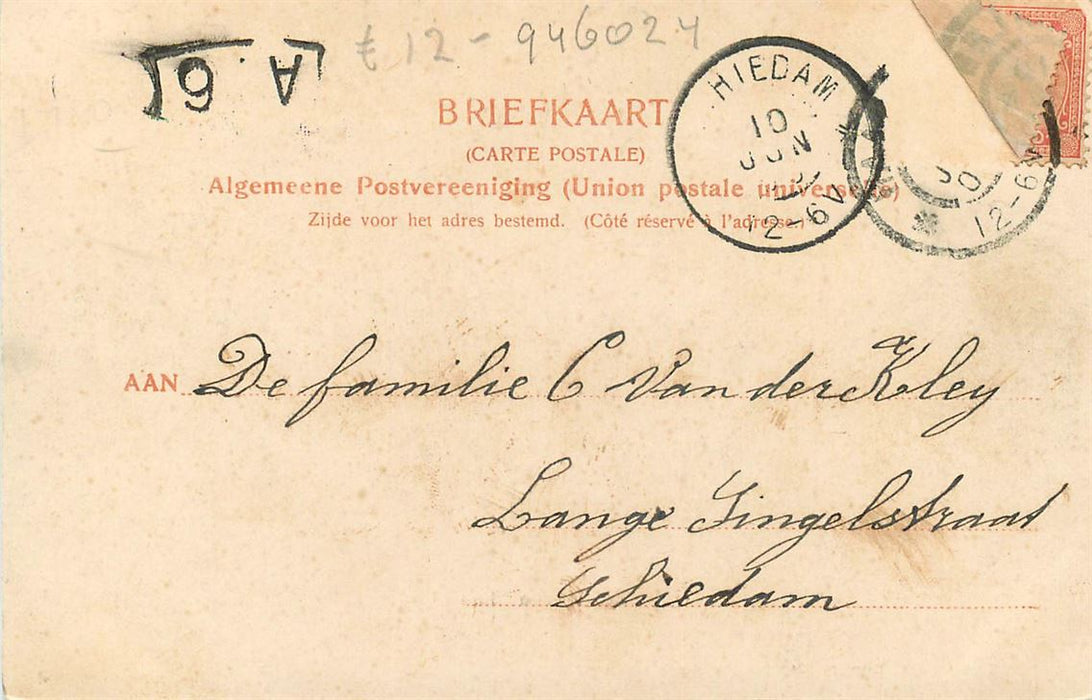 € 12 - 946024
A 6
BRIEFKAART
(CARTE POSTALE)
Algemeene Postvereeniging (Union postale universelle)
Zijde voor het adres bestemd. (Côté réservé à l'adresse.)
HIEDAM
10
JUN
12-6V
12-6V
AAN De familie C van der Kley
Lange Singelstraat
Schiedam